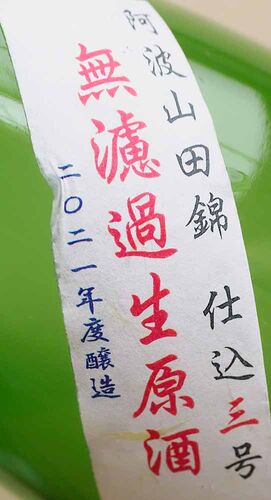 阿波山田錦 仕込三号
無濾過生原酒
二〇二一年度醸造